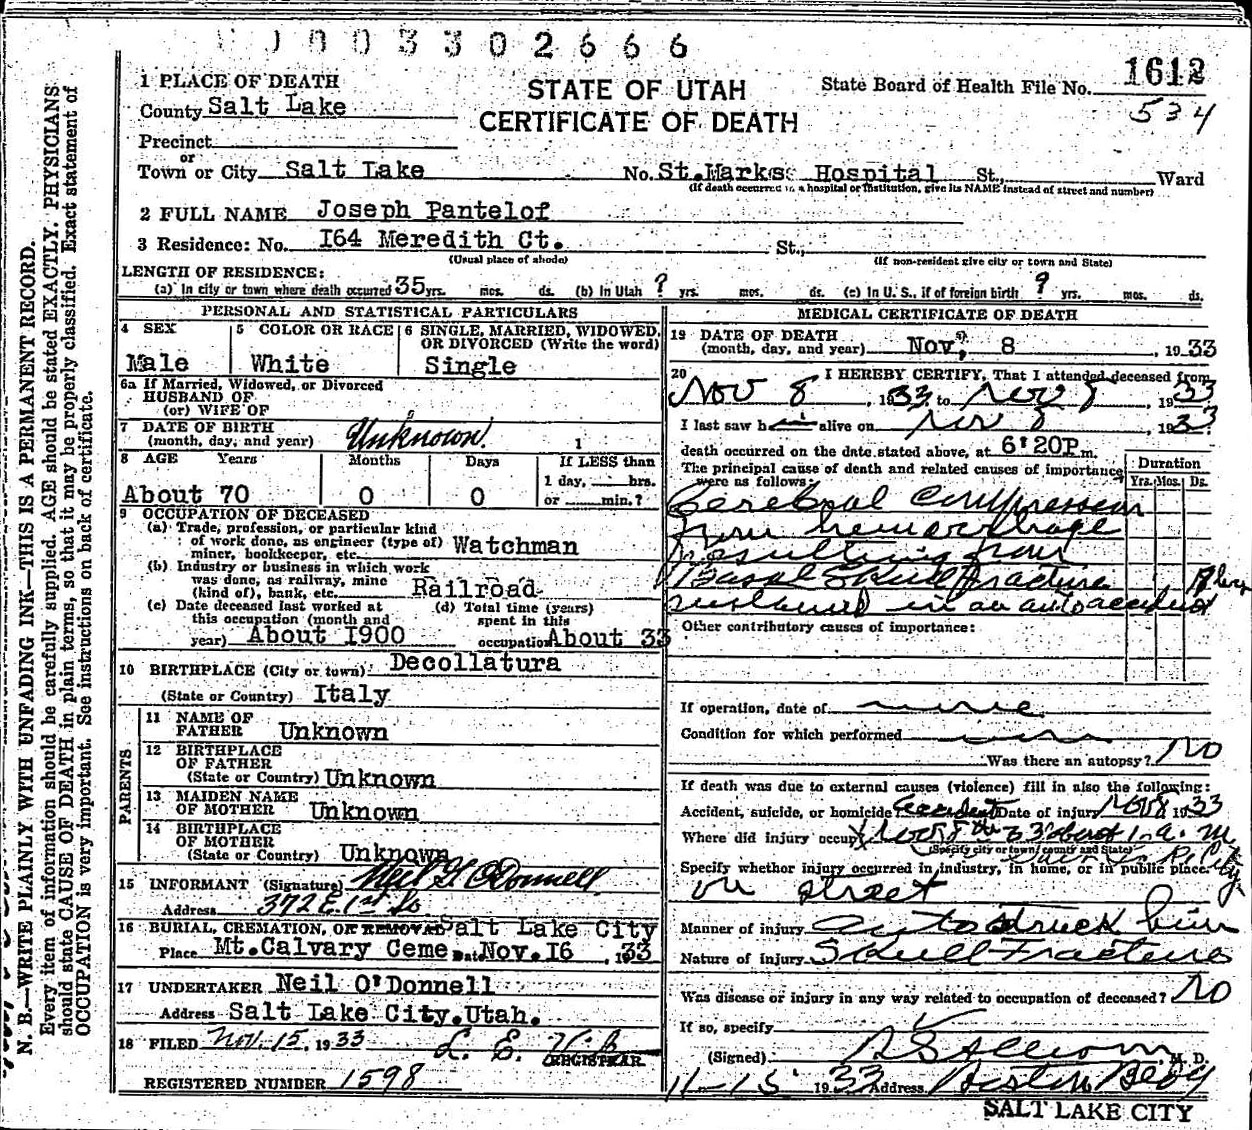 0003302666
1 PLACE OF DEATH
STATE OF UTAH
CERTIFICATE OF DEATH
State Board of Health File No. 1612
534
County Salt Lake
Precinct
or
Town or City Salt Lake No. St.Marks Hospital St., Ward
(If death occurred in a hospital or institution, give its NAME instead of street and number)
2 FULL NAME Joseph Pantelof
3 Residence: No. I64 Meredith Ct. St.,
(Usual place of abode) (If non-resident give city or town and State)
LENGTH OF RESIDENCE:
(a) In city or town where death occurred 35 yrs. mos. ds. (b) In Utah ? yrs. mos. ds. (c) In U. S., if of foreign birth ? yrs. mos. ds.
PERSONAL AND STATISTICAL PARTICULARS
4 SEX
Male
5 COLOR OR RACE
White
6 SINGLE, MARRIED, WIDOWED, OR DIVORCED (Write the word)
Single
6a If Married, Widowed, or Divorced
HUSBAND OF
(or) WIFE OF
7 DATE OF BIRTH
(month, day, and year) Unknown 1
8 AGE Years Months Days If LESS than
1 day, hrs.
About 70 0 0 or min.?
9 OCCUPATION OF DECEASED
(a) Trade, profession, or particular kind
of work done, as engineer (type of)
miner, bookkeeper, etc. Watchman
(b) Industry or business in which work
was done, as railway, mine
(kind of), bank, etc. Railroad
(c) Date deceased last worked at
this occupation (month and
year) About I900
(d) Total time (years)
spent in this
occupation About 33
10 BIRTHPLACE (City or town) Decollatura
(State or Country) Italy
PARENTS
11 NAME OF
FATHER Unknown
12 BIRTHPLACE
OF FATHER
(State or Country) Unknown
13 MAIDEN NAME
OF MOTHER Unknown
14 BIRTHPLACE
OF MOTHER
(State or Country) Unknown
15 INFORMANT (Signature) Neil G O'Donnell
Address 372 E. 1st So.
16 BURIAL, CREMATION, OR REMOVAL Salt Lake City
Place Mt.Calvary Ceme Date Nov.I6, 1933
17 UNDERTAKER Neil O'Donnell
Address Salt Lake City.Utah.
18 FILED Nov. 15, 1933 L. E.
REGISTRAR
REGISTERED NUMBER 1598
MEDICAL CERTIFICATE OF DEATH
19 DATE OF DEATH
(month, day, and year) Nov, 8, 1933
20 I HEREBY CERTIFY, That I attended deceased from
Nov 8, 1933 to Nov 8, 1933
I last saw him alive on Nov 8, 1933
death occurred on the date stated above, at 6:20P m.
The principal cause of death and related causes of importance
were as follows:
Duration
Yrs. Mos. Ds.
Cerebral Compression
from hemorrhage
resulting from
Basal Skull Fracture
sustained in an auto accident
Other contributory causes of importance:
If operation, date of none
Condition for which performed
Was there an autopsy? No
If death was due to external causes (violence) fill in also the following:
Accident, suicide, or homicide? Accident Date of injury Nov 8 1933
Where did injury occur?
(Specify city or town, county and State)
Specify whether injury occurred in industry, in home, or in public place.
on street
Manner of injury auto struck him
Nature of injury Skull Fracture
Was disease or injury in any way related to occupation of deceased? No
If so, specify
(Signed) M. D.
11-15 1933 Address Boston Bldg
SALT LAKE CITY
N. B.—WRITE PLAINLY WITH UNFADING INK—THIS IS A PERMANENT RECORD.
Every item of information should be carefully supplied. AGE should be stated EXACTLY. PHYSICIANS
should state CAUSE OF DEATH in plain terms, so that it may be properly classified. Exact statement of
OCCUPATION is very important. See instructions on back of certificate.